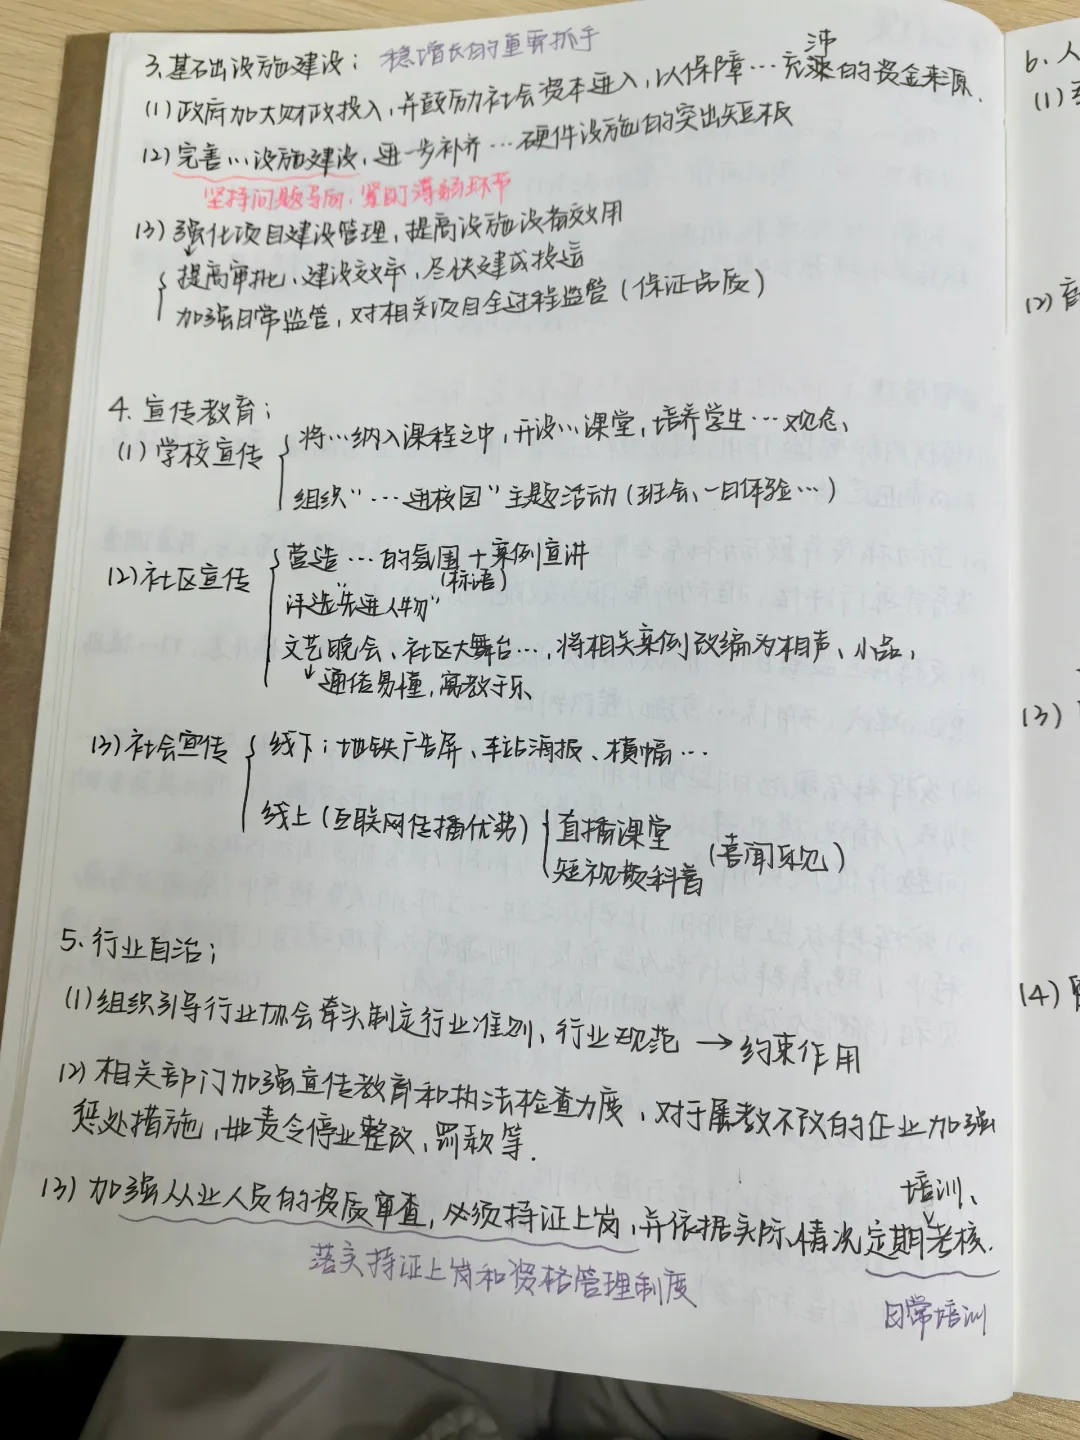 3.基础设施建设：稳增长的重要抓手
(1)政府加大财政投入，并鼓励社会资本进入，以保障…充沛的资金来源.
(2)完善…设施建设，进一步补齐…硬件设施的突出短板
坚持问题导向，紧盯薄弱环节
(3)强化项目建设管理，提高设施设备效用
提高审批、建设效率，尽快建成投运
加强日常监管，对相关项目全过程监管(保证品质)
4.宣传教育：
(1)学校宣传
将…纳入课程之中，开设…课堂，培养学生…观念、
组织"…进校园"主题活动(班会、一日体验…)
(2)社区宣传
营造…的氛围+案例宣讲
(标语)
评选"先进人物"
文艺晚会、社区大舞台…，将相关案例改编为相声、小品，
通俗易懂，寓教于乐
(3)社会宣传
线下：地铁广告屏、车站海报、横幅…
线上(互联网传播优势)
直播课堂
短视频科普
(喜闻乐见)
5.行业自治：
(1)组织引导行业协会牵头制定行业准则、行业规范→约束作用
(2)相关部门加强宣传教育和执法检查力度，对于屡教不改的企业加强
惩处措施，如责令停业整改，罚款等.
(3)加强从业人员的资质审查，必须持证上岗，并依据实际情况定期培训、考核.
落实持证上岗和资格管理制度
日常培训
6.人
(1)
(2)
(3)
(4)